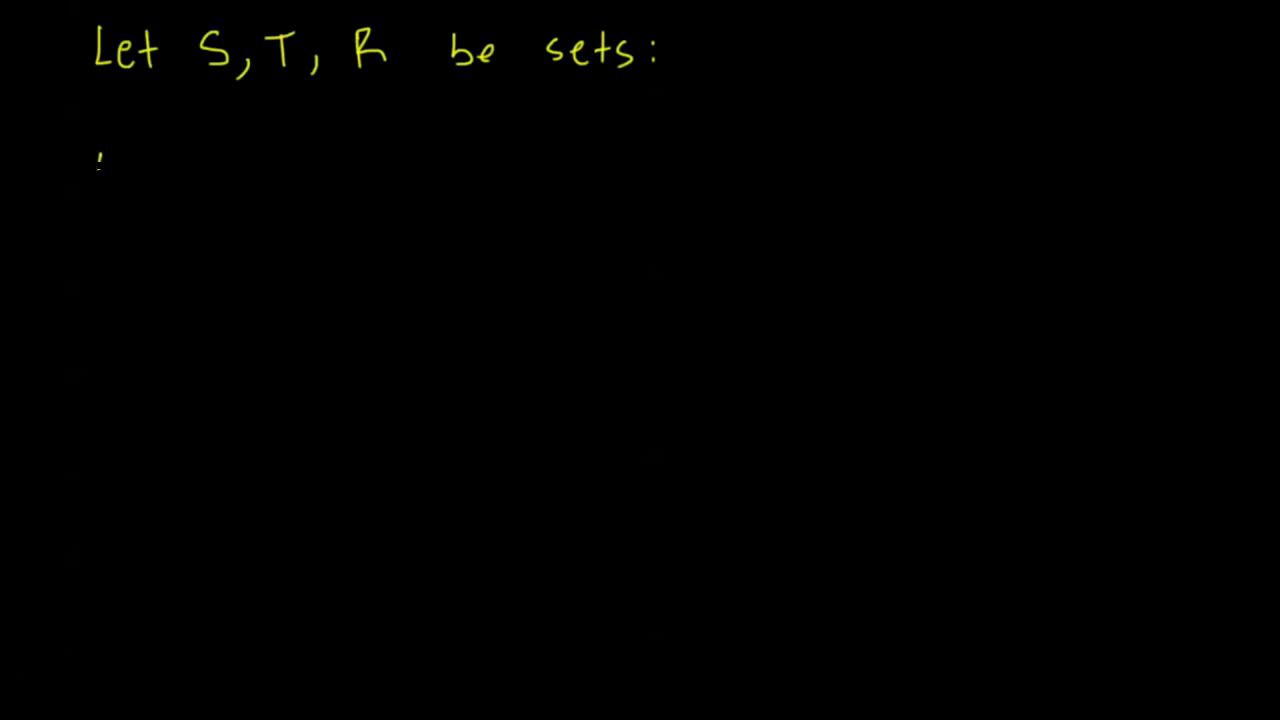 Let S, T, R be sets: